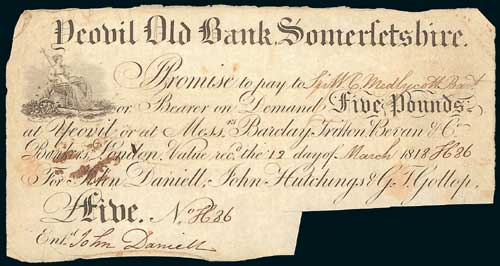 Yeovil Old Bank Somersetshire.
I Promise to pay to Sir W. C. Medlycott Bar.t
or Bearer on Demand Five Pounds
at Yeovil or at Mess.rs Barclay Tritton Bevan & C.o
Bankers, London. Value rec.d the 12 day of March 1818 H86
For John Daniell, John Hutchings & G. T. Gollop,
Five. No. H86
Ent.d John Daniell